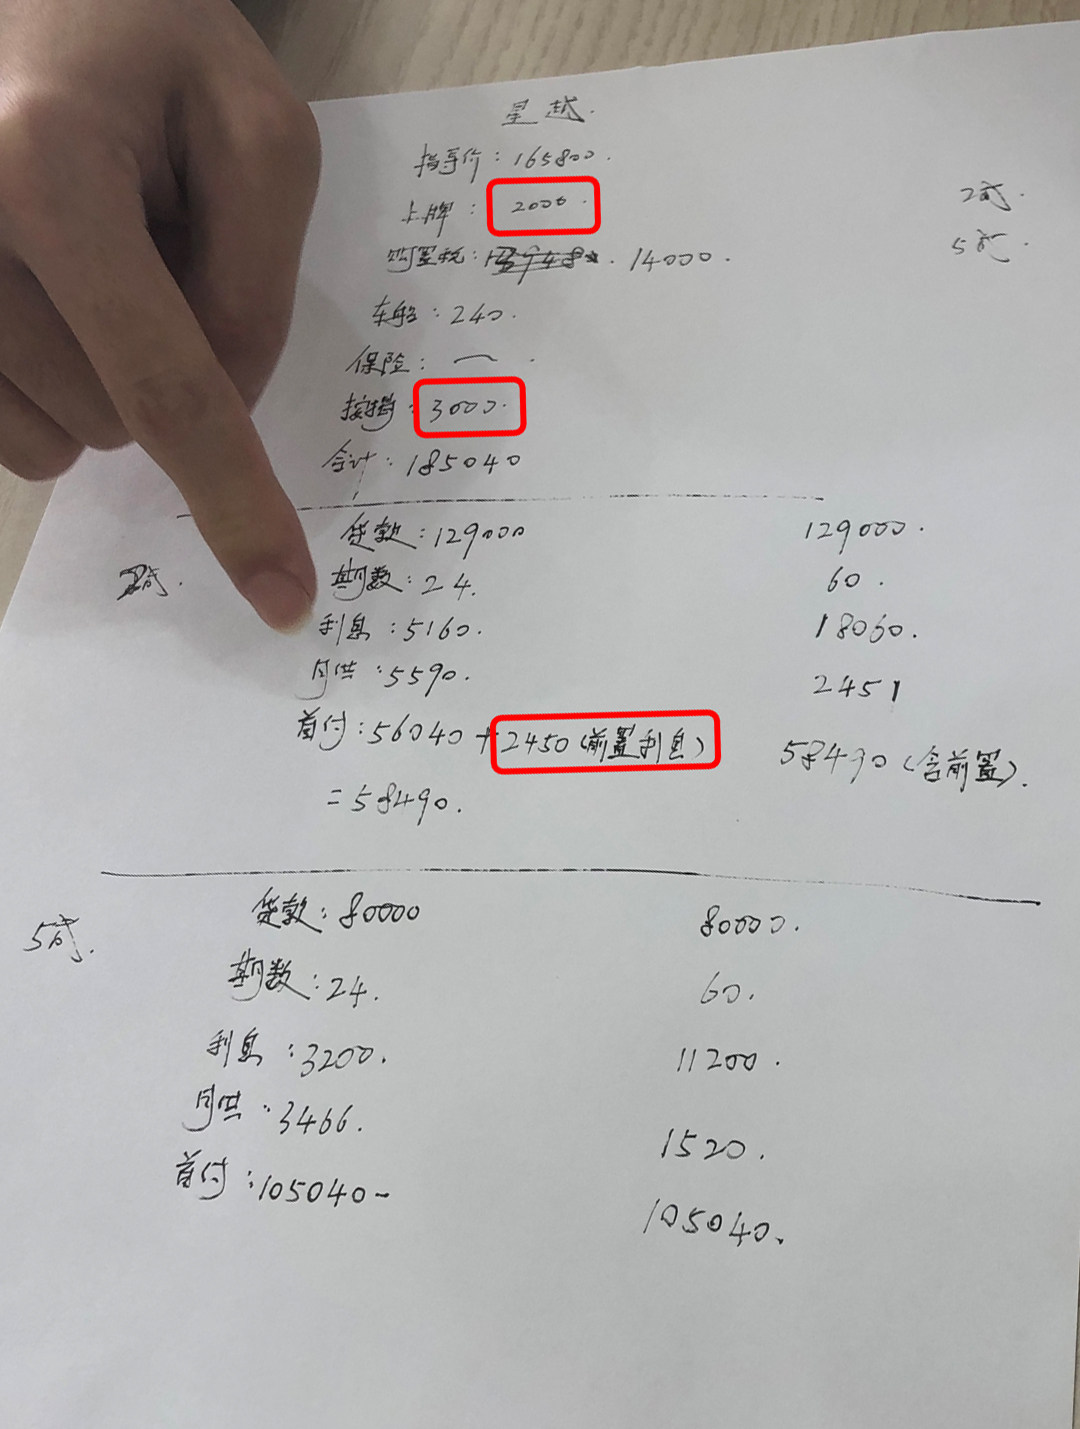 星越.
指导价:165800.
上牌:2000.
2成.
购置税: 14000.
5成.
车船:240.
保险:一.
按揭:3000.
合计:185040
2成.
贷款:129000 129000.
期数:24. 60.
利息:5160. 18060.
月供:5590. 2451
首付:56040+2450(前置利息) 58490(含前置).
=58490.
5成.
贷款:80000 80000.
期数:24. 60.
利息:3200. 11200.
月供:3466. 1520.
首付:105040- 105040.